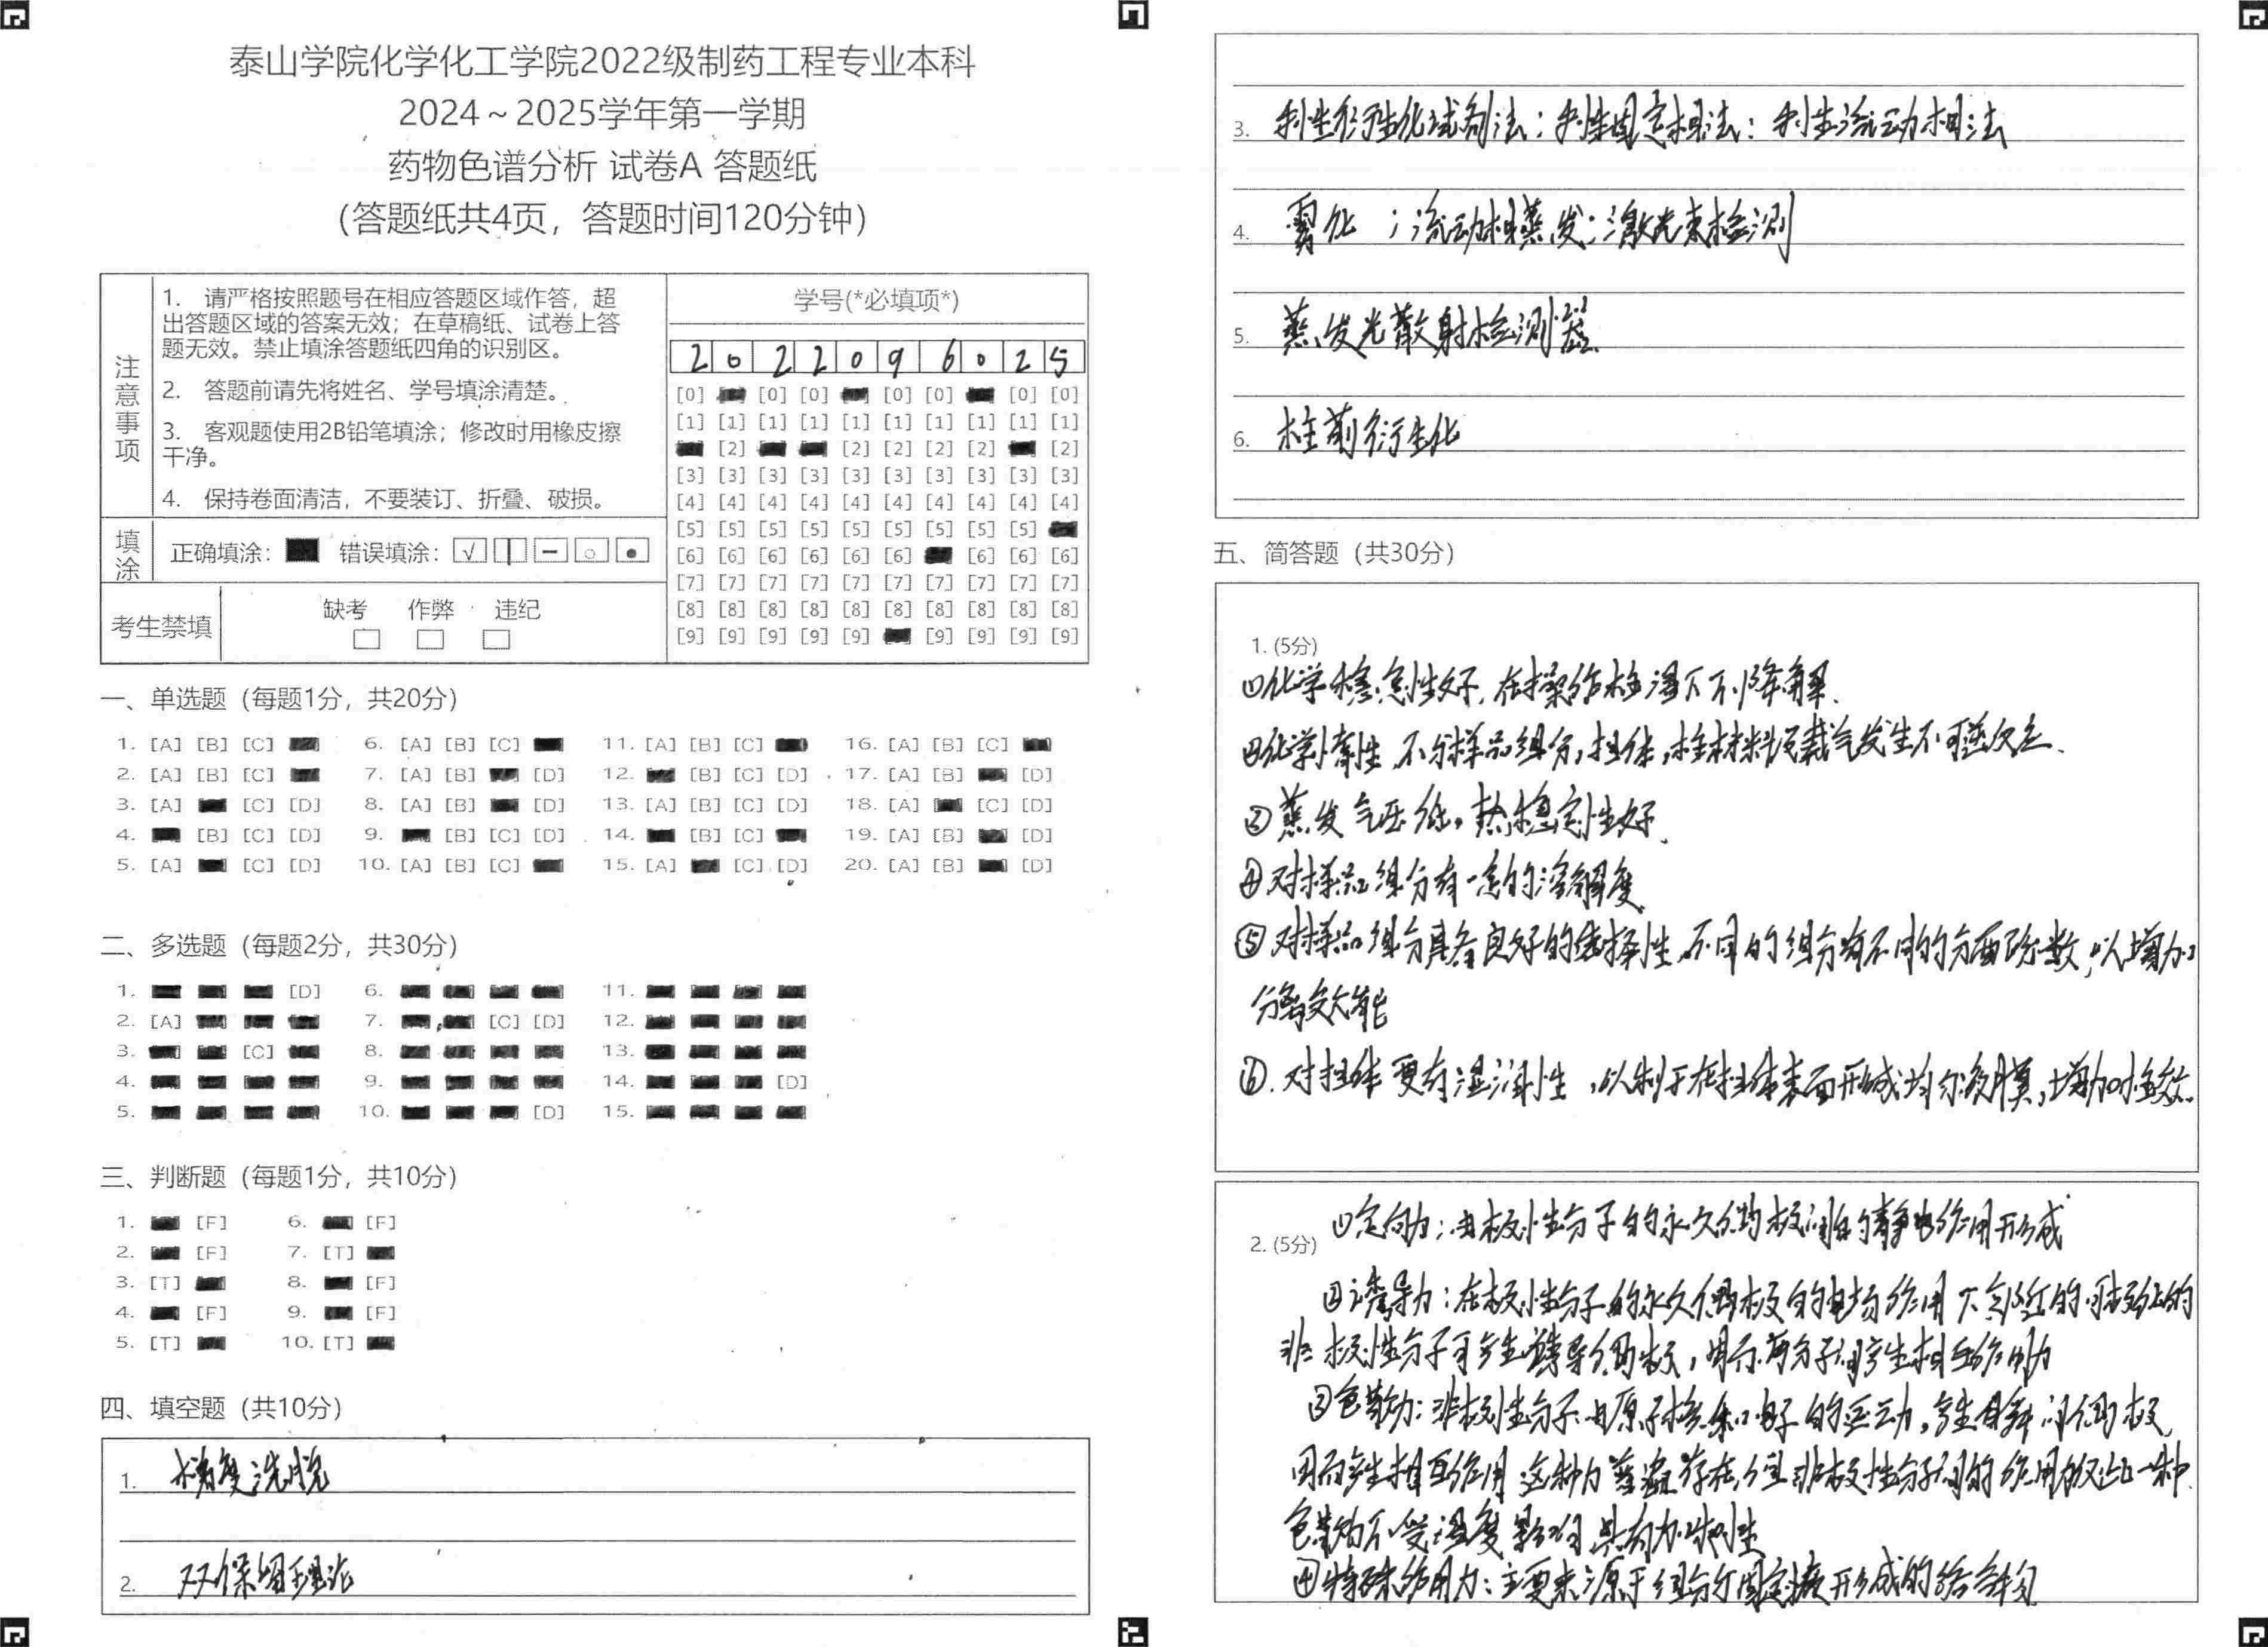 泰山学院化学化工学院2022级制药工程专业本科
2024～2025学年第一学期
药物色谱分析 试卷A 答题纸
（答题纸共4页，答题时间120分钟）
注意事项
1. 请严格按照题号在相应答题区域作答，超
出答题区域的答案无效；在草稿纸、试卷上答
题无效。禁止填涂答题纸四角的识别区。
2. 答题前请先将姓名、学号填涂清楚。
3. 客观题使用2B铅笔填涂；修改时用橡皮擦
干净。
4. 保持卷面清洁，不要装订、折叠、破损。
填涂
正确填涂： 错误填涂：
考生禁填
缺考 作弊 违纪
学号(*必填项*)
2 0 2 2 0 9 6 0 2 5
[0] [0] [0] [0] [0] [0] [0]
[1] [1] [1] [1] [1] [1] [1] [1] [1] [1]
[2] [2] [2] [2] [2] [2]
[3] [3] [3] [3] [3] [3] [3] [3] [3] [3]
[4] [4] [4] [4] [4] [4] [4] [4] [4] [4]
[5] [5] [5] [5] [5] [5] [5] [5] [5]
[6] [6] [6] [6] [6] [6] [6] [6] [6]
[7] [7] [7] [7] [7] [7] [7] [7] [7] [7]
[8] [8] [8] [8] [8] [8] [8] [8] [8] [8]
[9] [9] [9] [9] [9] [9] [9] [9] [9]
一、单选题（每题1分，共20分）
1. [A] [B] [C] 6. [A] [B] [C] 11. [A] [B] [C] 16. [A] [B] [C]
2. [A] [B] [C] 7. [A] [B] [D] 12. [B] [C] [D] 17. [A] [B] [D]
3. [A] [C] [D] 8. [A] [B] [D] 13. [A] [B] [C] [D] 18. [A] [C] [D]
4. [B] [C] [D] 9. [B] [C] [D] 14. [B] [C] 19. [A] [B] [D]
5. [A] [C] [D] 10. [A] [B] [C] 15. [A] [C] [D] 20. [A] [B] [D]
二、多选题（每题2分，共30分）
1. [D] 6. 11.
2. [A] 7. [C] [D] 12.
3. [C] 8. 13.
4. 9. 14. [D]
5. 10. [D] 15.
三、判断题（每题1分，共10分）
1. [F] 6. [F]
2. [F] 7. [T]
3. [T] 8. [F]
4. [F] 9. [F]
5. [T] 10. [T]
四、填空题（共10分）
1. 梯度洗脱
2. 双保留理论
3. 手性衍生化试剂法；手性固定相法；手性流动相法
4. 雾化 ；流动相蒸发；激光束检测
5. 蒸发光散射检测器
6. 柱前衍生化
五、简答题（共30分）
1. (5分)
①化学稳定性好，在操作柱温下不降解．
②化学惰性，不与样品组分，担体，柱材料及载气发生不可逆反应．
③蒸发气压低，热稳定性好．
④对样品组分有一定的溶解度
⑤对样品组分具备良好的选择性，不同的组分有不同的分配系数，以增加
分离效能
⑥．对担体要有湿润性，以利于在担体表面形成均匀液膜，增加柱效．
2. (5分)
①定向力：由极性分子的永久偶极间的静电作用形成
②诱导力：在极性分子的永久偶极的电场作用下，附近的可极化的
非极性分子可产生诱导偶极，因而两分子间产生相互作用力
③色散力：非极性分子由原子核和电子的运动，产生瞬间偶极
因而产生相互作用，这种力普遍存在，但非极性分子间的作用力仅这一种
色散力不受温度影响，具有加和性
④特殊作用力：主要来源于组分与固定液形成的络合物